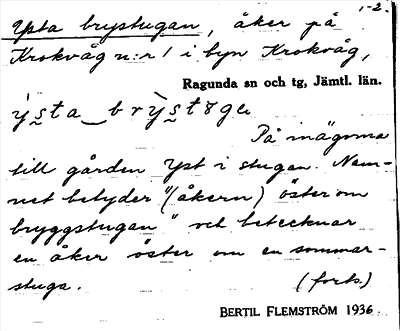 1-2.
Ysta brystugan, åker på
Krokvåg n:r 1 i byn Krokvåg,
Ragunda sn och tg, Jämtl. län.
ỳsta‿brỳstɷga
På inägorna
till gården Yst i stugan. Nam-
net betyder "(åkern) öster om
bryggstugan" och betecknar
en åker öster om en sommar-
stuga. (forts.)
BERTIL FLEMSTRÖM 1936